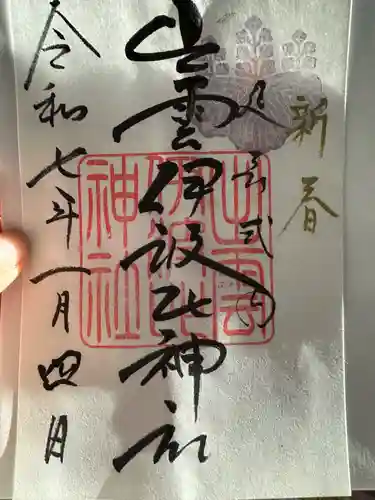 新春
延喜式内
出雲伊波比神社
出雲
伊波比
神社
令和七年一月四日